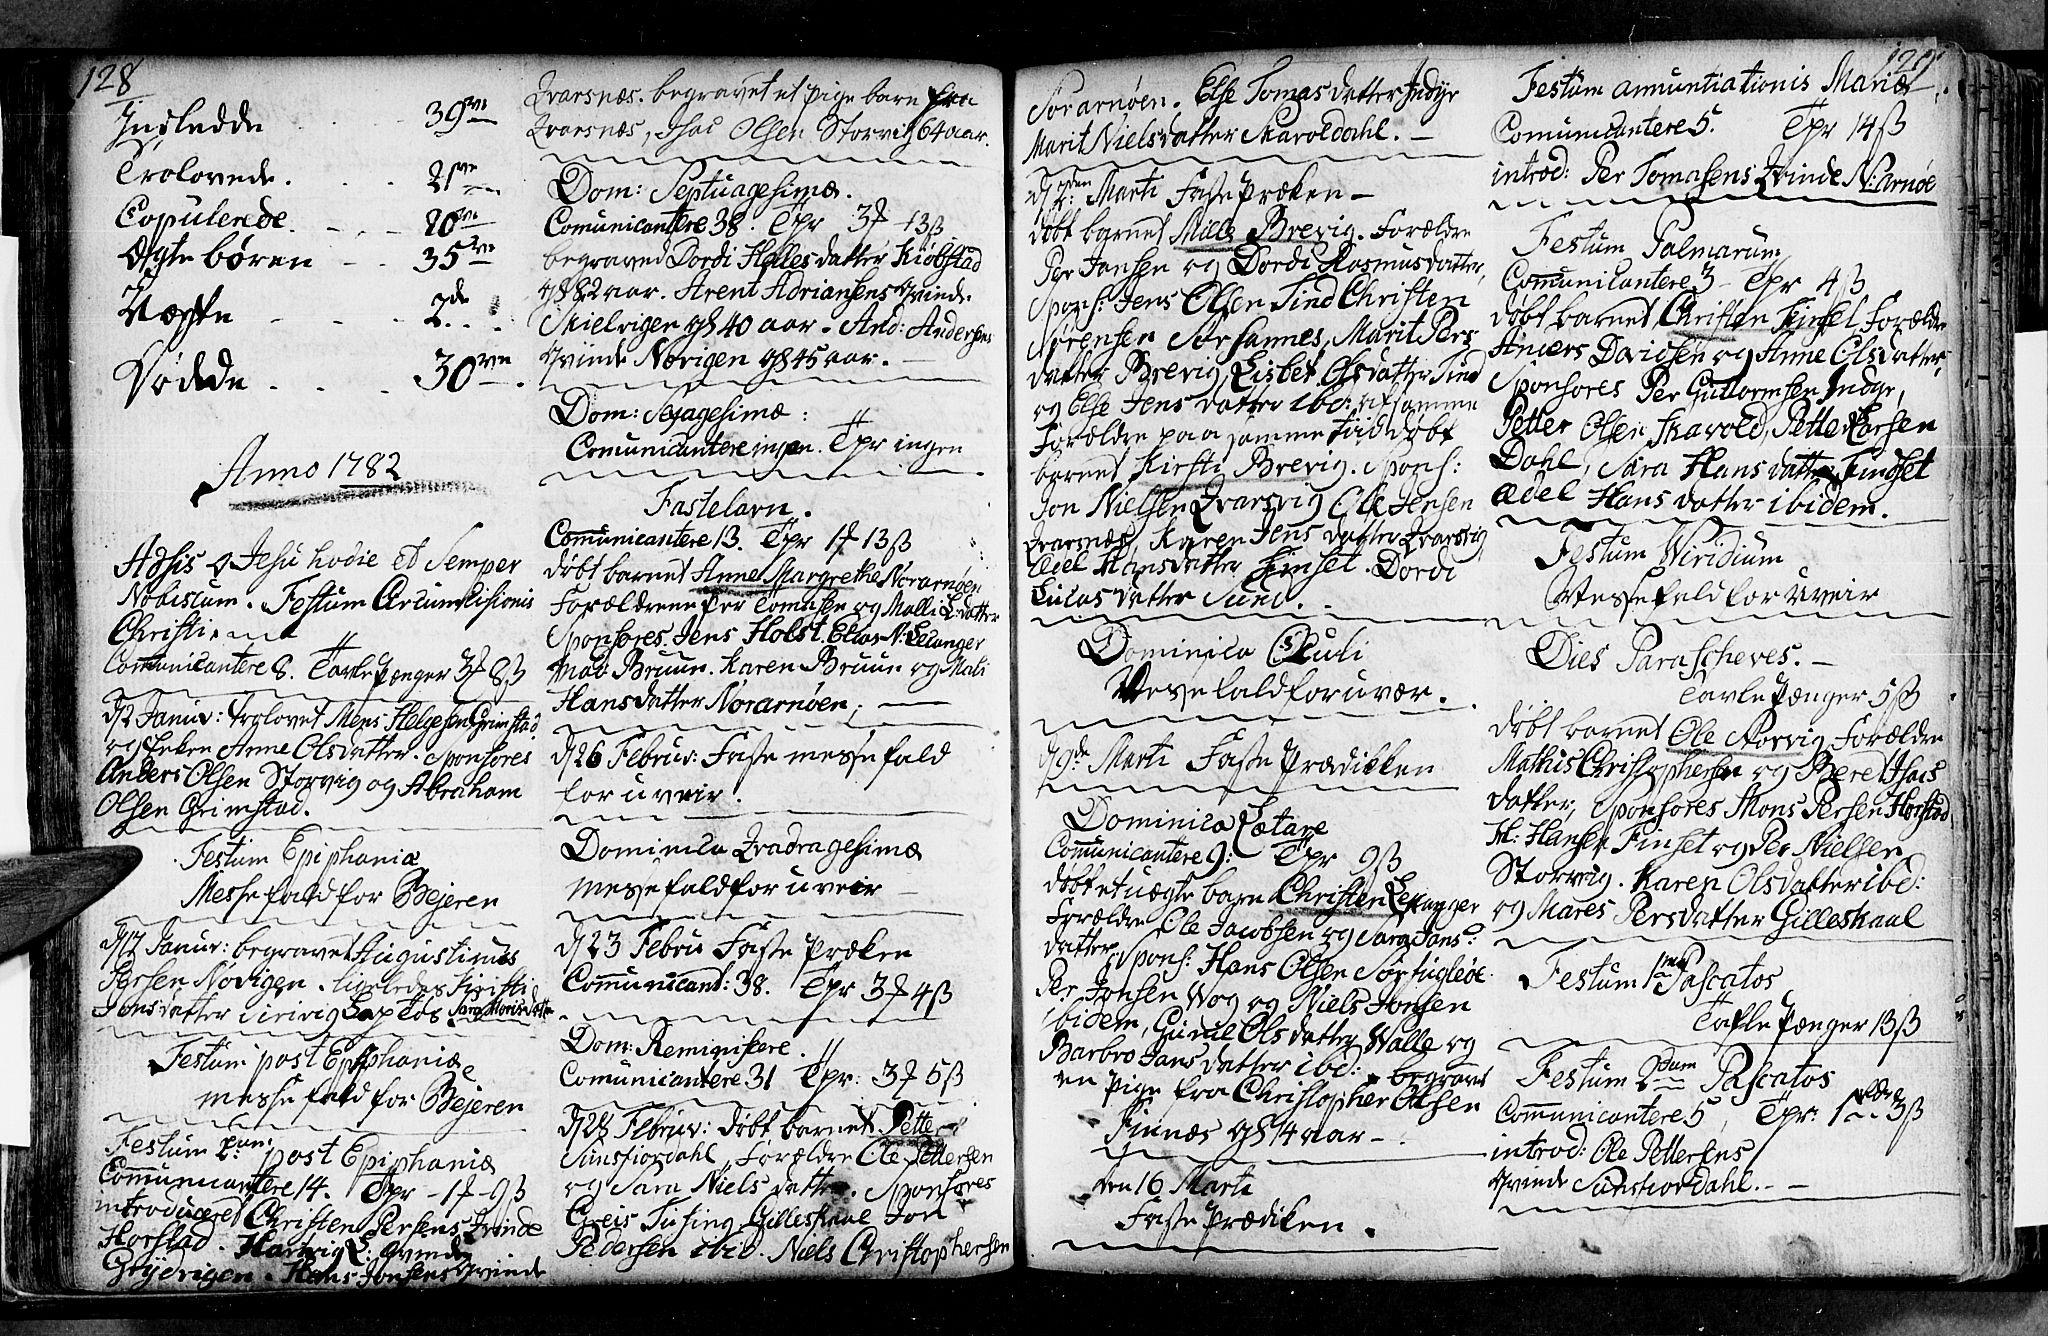 128
Insledde . . . . 39ve
Trolovede. . . . 21ve
Copulerede. . . . 20ve
Ægte børen - - 35ve
Uægte - - - - 2de
Dødde . . . . 30ve
Anno 1782
Adsis o Jesu hodie et Semper
Nobiscum. Festum Circumcisionis
Christi
Comunicantere 8. Tavle Pænger 3f 8ß
d 2 Janur: trolovet Mens Helgesen Grimstad
og Anne Olsdatter. Sponsores
Anders Olsen Storvig og Abraham
Olsen Grimstad.
Festum Epiphaniæ
Messe fald for Bejeren
d 17 Janur: begravet Augustinus
Persen Nørigen.
Jonsdatter
Festum post Epiphaniæ
messe fald for Bejeren
Festum post Epiphaniæ
Comunicantere 14. Tpr - 1f - 9ß
introduceret Christen Persens Qvinde
Horstad. Hartvig L: Qvinde
Hans Jonsens Qvinde
Qvarsnæs. begravet et pige barn fra
Qvarsnæs, Isac Olsen Storvig 64 aar.
Dom: Septuagesimæ.
Comunicantere 38. Tpr 3f - 13ß
begraved Dordi Hellesdatter Kiøbstad
gl 82 aar. Arent Adriansens Qvinde
Mielvigen gl 40 aar. And: Andersens
Qvinde Norigen gl 45 aar.
Dom: Sexagesimæ:
Comunicantere ingen. Tpr ingen
Fastelavn.
Comunicantere 13. Tpr 1f 13ß
døbt barnet Anne Margrethe Norarnøen
Forældrene Per Tomesen og Malli L:datter
Sponsores Jens Holst. Elias N: Leganger
Mad Bruun. Karen Bruun og Mali
Hansdatter Norarnøen;
d 26 Februr: Faste messe fald
for uveir.
Dominica Qvadragesimæ
messefald for uveir
d 23 Febru Faste Præken
Comunicant: 38. Tpr 3f 4ß
Dom: Reminiscere.
Comunicantere 31 Tpr: 3f 5ß
d 28 Februr: døbt barnet Petter
Sunsfiordahl, Forældre Ole Pettersen
og Sara Nielsdatter. Sponsores
Greis Tusing Gilleskaal Jon
Pedersen ibid. Niels Christophersen
129
Sørarnøen. Else Tomasdatter Indyr
Marit Nielsdatter Skavoldahl.
d 7den Marti Faste Præken
døbt barnet Mille Brevig. Forældre
Per Jansen og Dordi Rasmusdatter,
Spons: Jens Olsen Sund Christen
Sørensen Sørsannes, Marit Pers
datter Brevig, Lisbet Olsdatter Sund
og Else Jensdatter ibd: af samme
Forældre paa samme tiid døbt
barnet Kirsti Brevig. Spons:
Jon Nielsen Qvarsvig Ole Jensen
Qvarsnæs Karen Jensdatter Qvarsvig
Edel Hansdatter Finset. Dordi
Lucasdatter Sund.
Dominica Oculi
Messefald for uvær.
d 9de Marti Faste Prædikken
Dominica Lætare
Comunicantere 9: Tpr 9ß
døbt et uægte barn Christen Leganger
Forældre Ole Jacobsen og Sara Jans:
datter, Spons: Hans Olsen Sørfugleøe
Per Jonsen Wog og Niels Jonsen
ibidem, Gunnil Olsdatter Walle og
Barbro Jansdatter ibd: begravet
en Pige fra Christopher Olsen
Finnæs gl 14 aar
den 16 Marti
Faste Prædiken.
Festum annuntiationis Mariæ
Comunicantere 5. Tpr 14ß
introd: Per Tomasens Qvinde N:arnøe
Festum Palmarum
Comunicantere 3 - Tpr 4ß
døbt barnet Christen Finset Forældre
Anders Davidsen og Anne Olsdatter,
Sponsores Per Guttormsen Indyr,
Petter Olsen Skavold, Petter Larsen
Dahl, Sara Hansdatter Findset
Ædel Hansdatter ibidem.
Festum Viridium
Messefald for Uveir
Dies Parascheves.
Tavle Pænger 5ß
døbt barnet Ole Norvig Forældre
Mathis Christophersen og Beret Isacs
datter, Sponsores Mons Persen Horstad
H: Hansen Finset og Per Nielsen
Storvig. Karen Olsdatter ibd:
og Mares Persdatter Gilleskaal
Festum 1mum Pascatos
Tafle Pænger 13ß
Festum 2dum Pascatos
Comunicantere 5, Tpr: 1 3ß
introd: Ole Pettersens
Qvinde Sunsfiordahl.